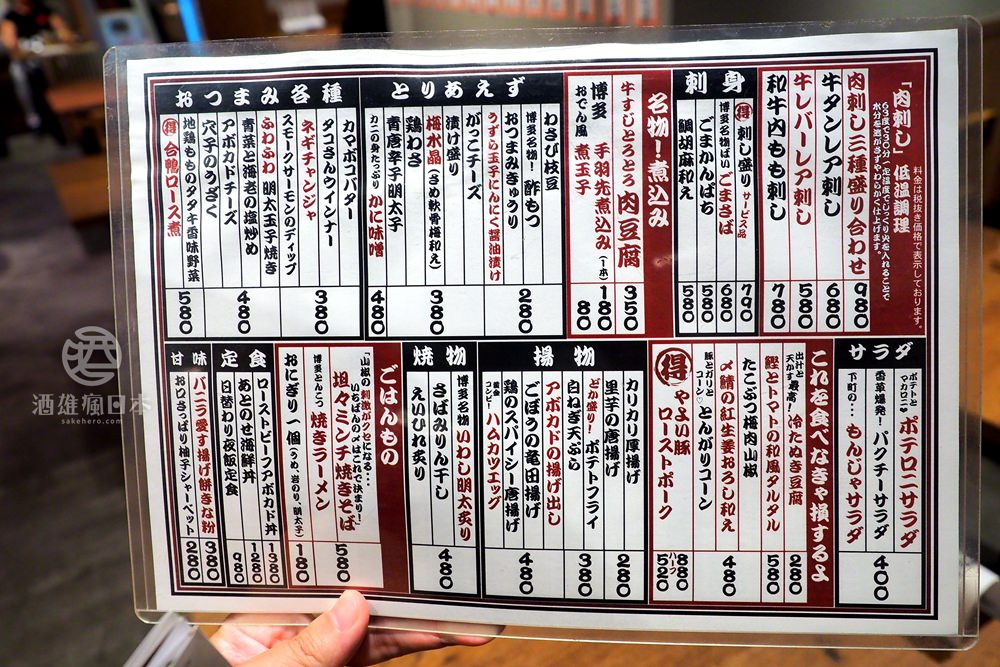 「肉刺し」低温調理
料金は税抜き価格で表示しております。
63度で30分！一定温度でじっくり火を入れることで
水分を逃がさずやわらかく仕上げます。
肉刺し三種盛り合わせ
980
牛タンレア刺し
680
牛レバーレア刺し
580
和牛内もも刺し
780
刺身
得 刺し盛り サービス品
790
博多名物ばり！ごまさば
680
ごまかんぱち
580
鯛胡麻和え
580
名物！煮込み
牛すじとろとろ肉豆腐
350
博多 手羽先煮込み(1本)
180
おでん風 煮玉子
80
とりあえず
わさび枝豆
博多名物！酢もつ
おつまみきゅうり
280
うずら玉子にんにく醤油漬け
がっこチーズ
漬け盛り
梅水晶(さめ軟骨梅和え)
鶏わさ
380
青唐辛子明太子
カニの身たっぷり かに味噌
480
おつまみ各種
カマンボコバター
タコさんウィンナー
ネギチャンジャ
スモークサーモンのディップ
380
ふわふわ明太玉子焼き
青菜と海老の塩炒め
アボカドチーズ
480
穴子のうざく
地鶏もものタタキ香味野菜
得 合鴨ロース煮
580
サラダ
ポテトとマカロニ♥ ポテロニサラダ
雪草爆発！パクチーサラダ
下町の… もんじゃサラダ
400
これを食べなきゃ損するよ
出汁と天かす最高！ 冷たぬき豆腐
280
鰹とトマトの和風タルタル
580
たこぶつ梅肉山椒
〆鯖の紅生姜おろし和え
豚とガリとコーン♡ とんがりコーン
480
得 やよい豚ローストポーク
880
ハーフ 520
揚物
カリカリ厚揚げ
里芋の唐揚げ
280
どか盛り！ポテトフライ
白ねぎ天ぷら
380
アボカドの揚げ出し
ごぼうの竜田揚げ
鶏のスパイシー唐揚げ
黄金コンビ！ ハムカツエッグ
480
焼物
博多名物いわし明太炙り
さばみりん干し
えいひれ炙り
480
ごはんもの
「山椒の刺激がクセになる…
いちばんの〆はこれで決まり！」
坦々ミンチ焼きそば
580
博多とんこつ 焼きラーメン
おにぎり一個(うめ、岩のり、明太子)
180
定食
ローストビーフアボカド丼
1380
あとのせ海鮮丼
1280
日替わり夜飯定食
980
甘味
バニラ愛す揚げ餅きな粉
380
お口さっぱり柚子シャーベット
280
酒
酒雄瘋日本
sakehero.com